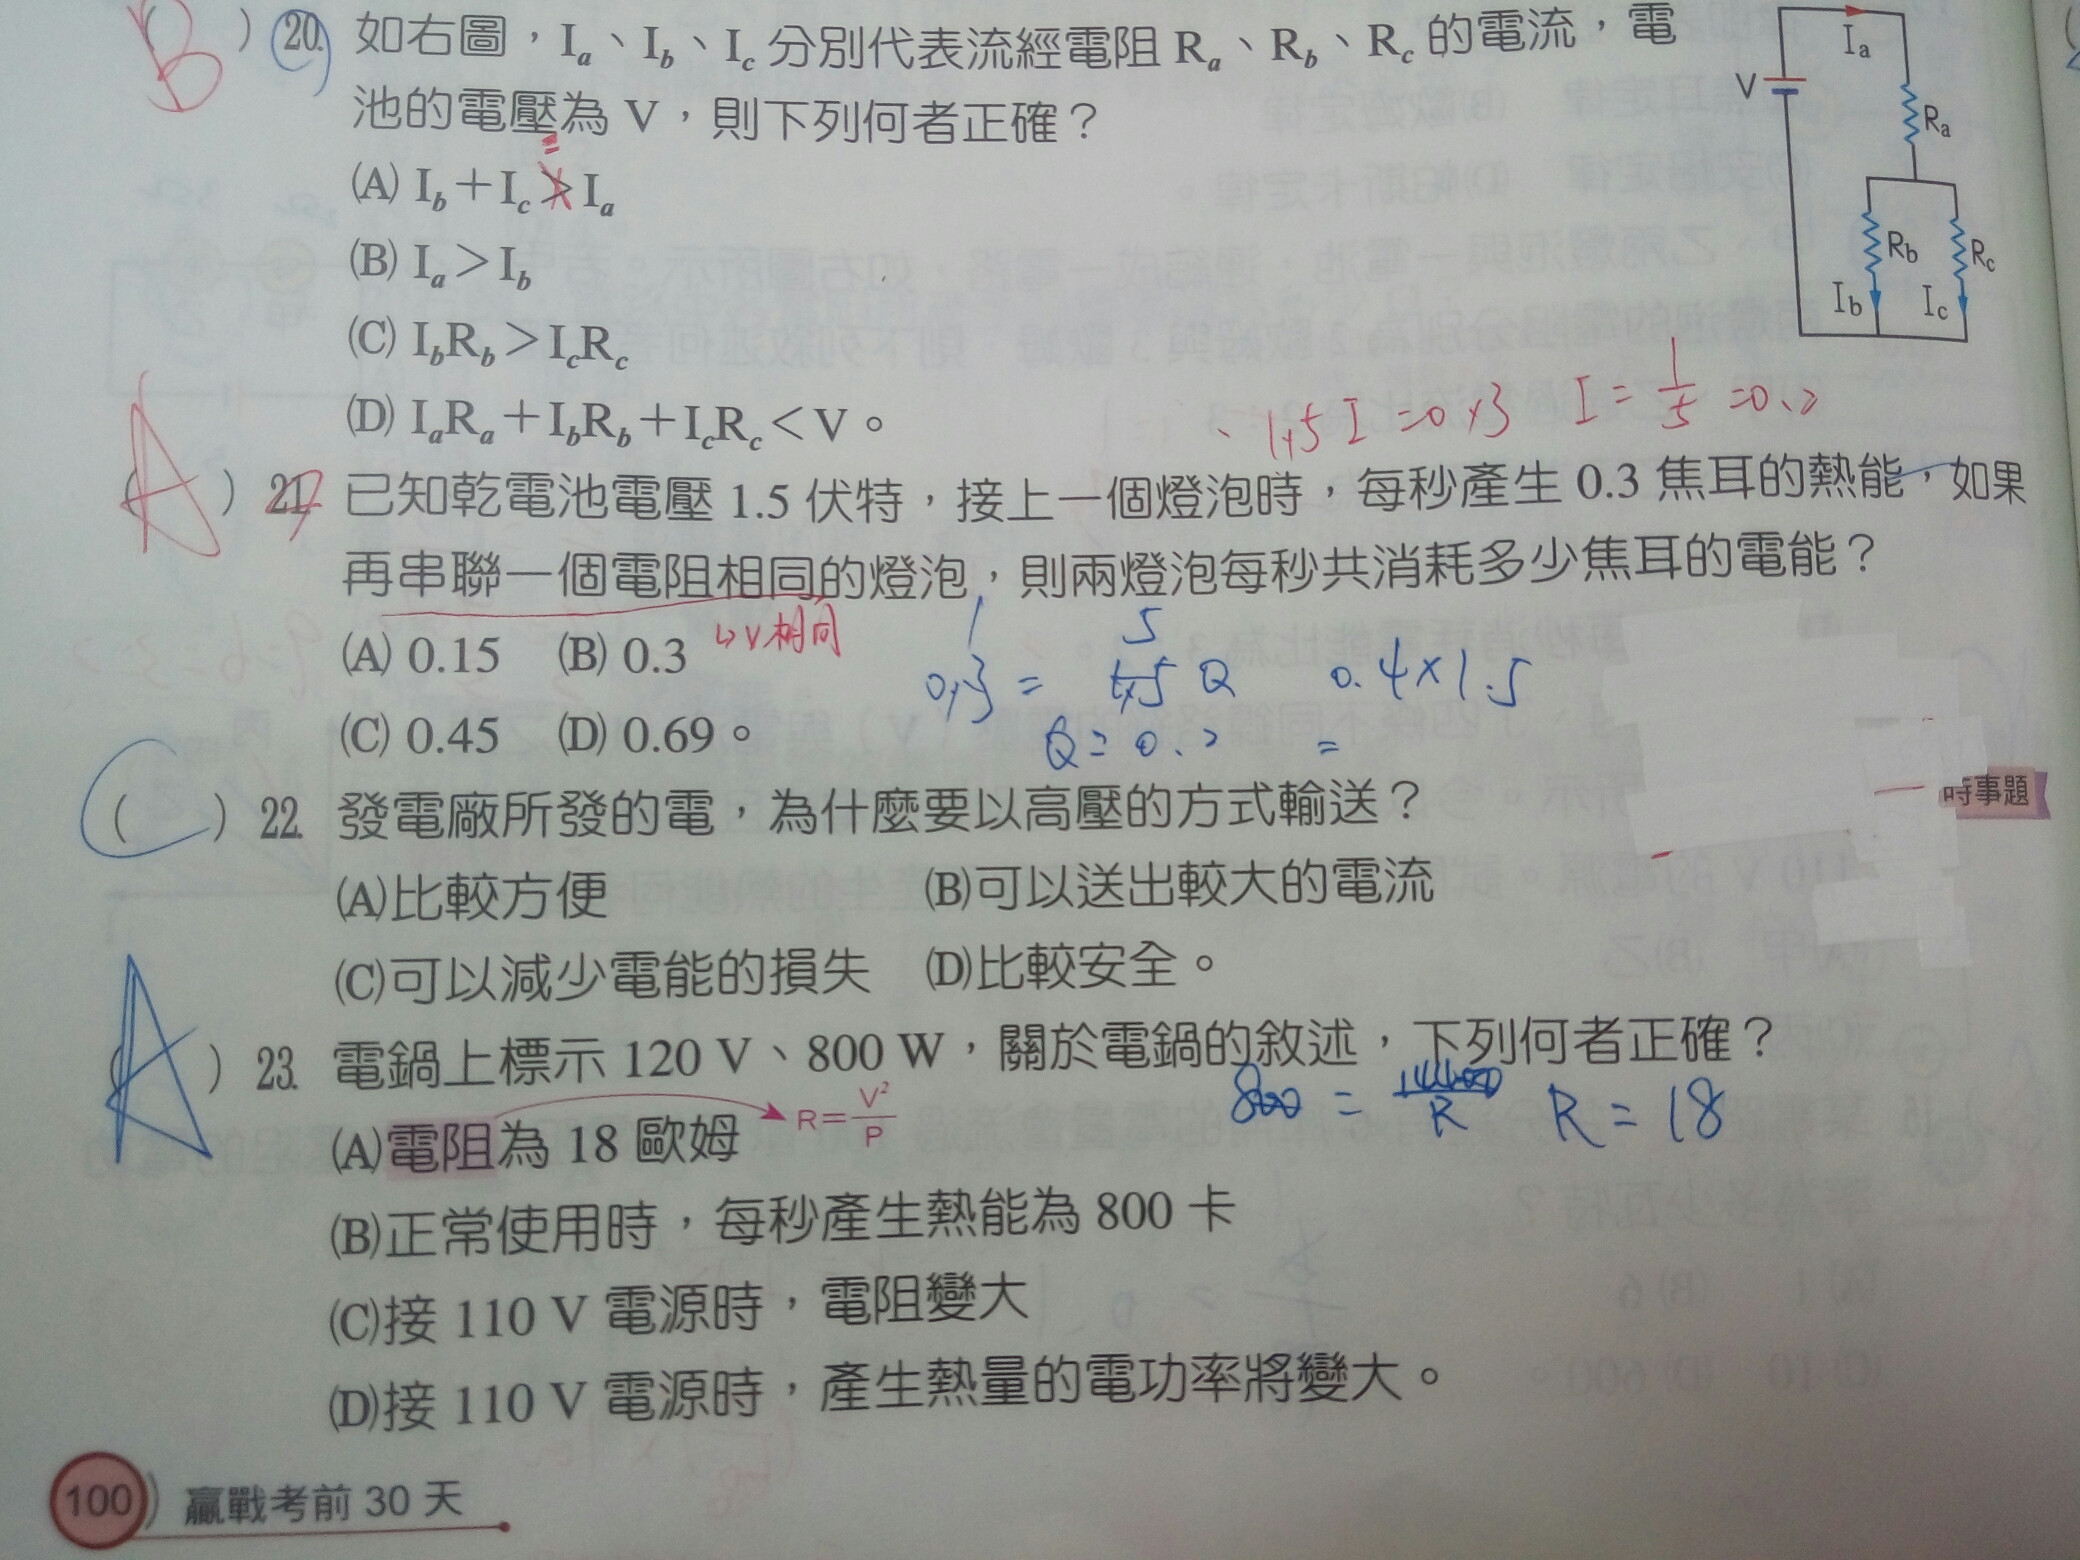 B ) 20. 如右圖，Ia、Ib、Ic 分別代表流經電阻 Ra、Rb、Rc 的電流，電
池的電壓為 V，則下列何者正確？
(A) Ib＋Ic＞Ia
=
(B) Ia＞Ib
(C) IbRb＞IcRc
(D) IaRa＋IbRb＋IcRc＜V。
Ia
V
Ra
Rb
Rc
Ib
Ic
1.5 I = 0.3 I = 1/5 = 0.2
(A) 21. 已知乾電池電壓 1.5 伏特，接上一個燈泡時，每秒產生 0.3 焦耳的熱能，如果
再串聯一個電阻相同的燈泡，則兩燈泡每秒共消耗多少焦耳的電能？
(A) 0.15 (B) 0.3
V相同
(C) 0.45 (D) 0.69。
1 5
0.3 = 1.5 Q 0.4×1.5
Q = 0.2 =
(C) 22. 發電廠所發的電，為什麼要以高壓的方式輸送？
時事題
(A)比較方便 (B)可以送出較大的電流
(C)可以減少電能的損失 (D)比較安全。
(A) 23. 電鍋上標示 120 V、800 W，關於電鍋的敘述，下列何者正確？
800 = 14400/R R = 18
(A)電阻為 18 歐姆 R=V²/P
(B)正常使用時，每秒產生熱能為 800 卡
(C)接 110 V 電源時，電阻變大
(D)接 110 V 電源時，產生熱量的電功率將變大。
100 贏戰考前 30 天